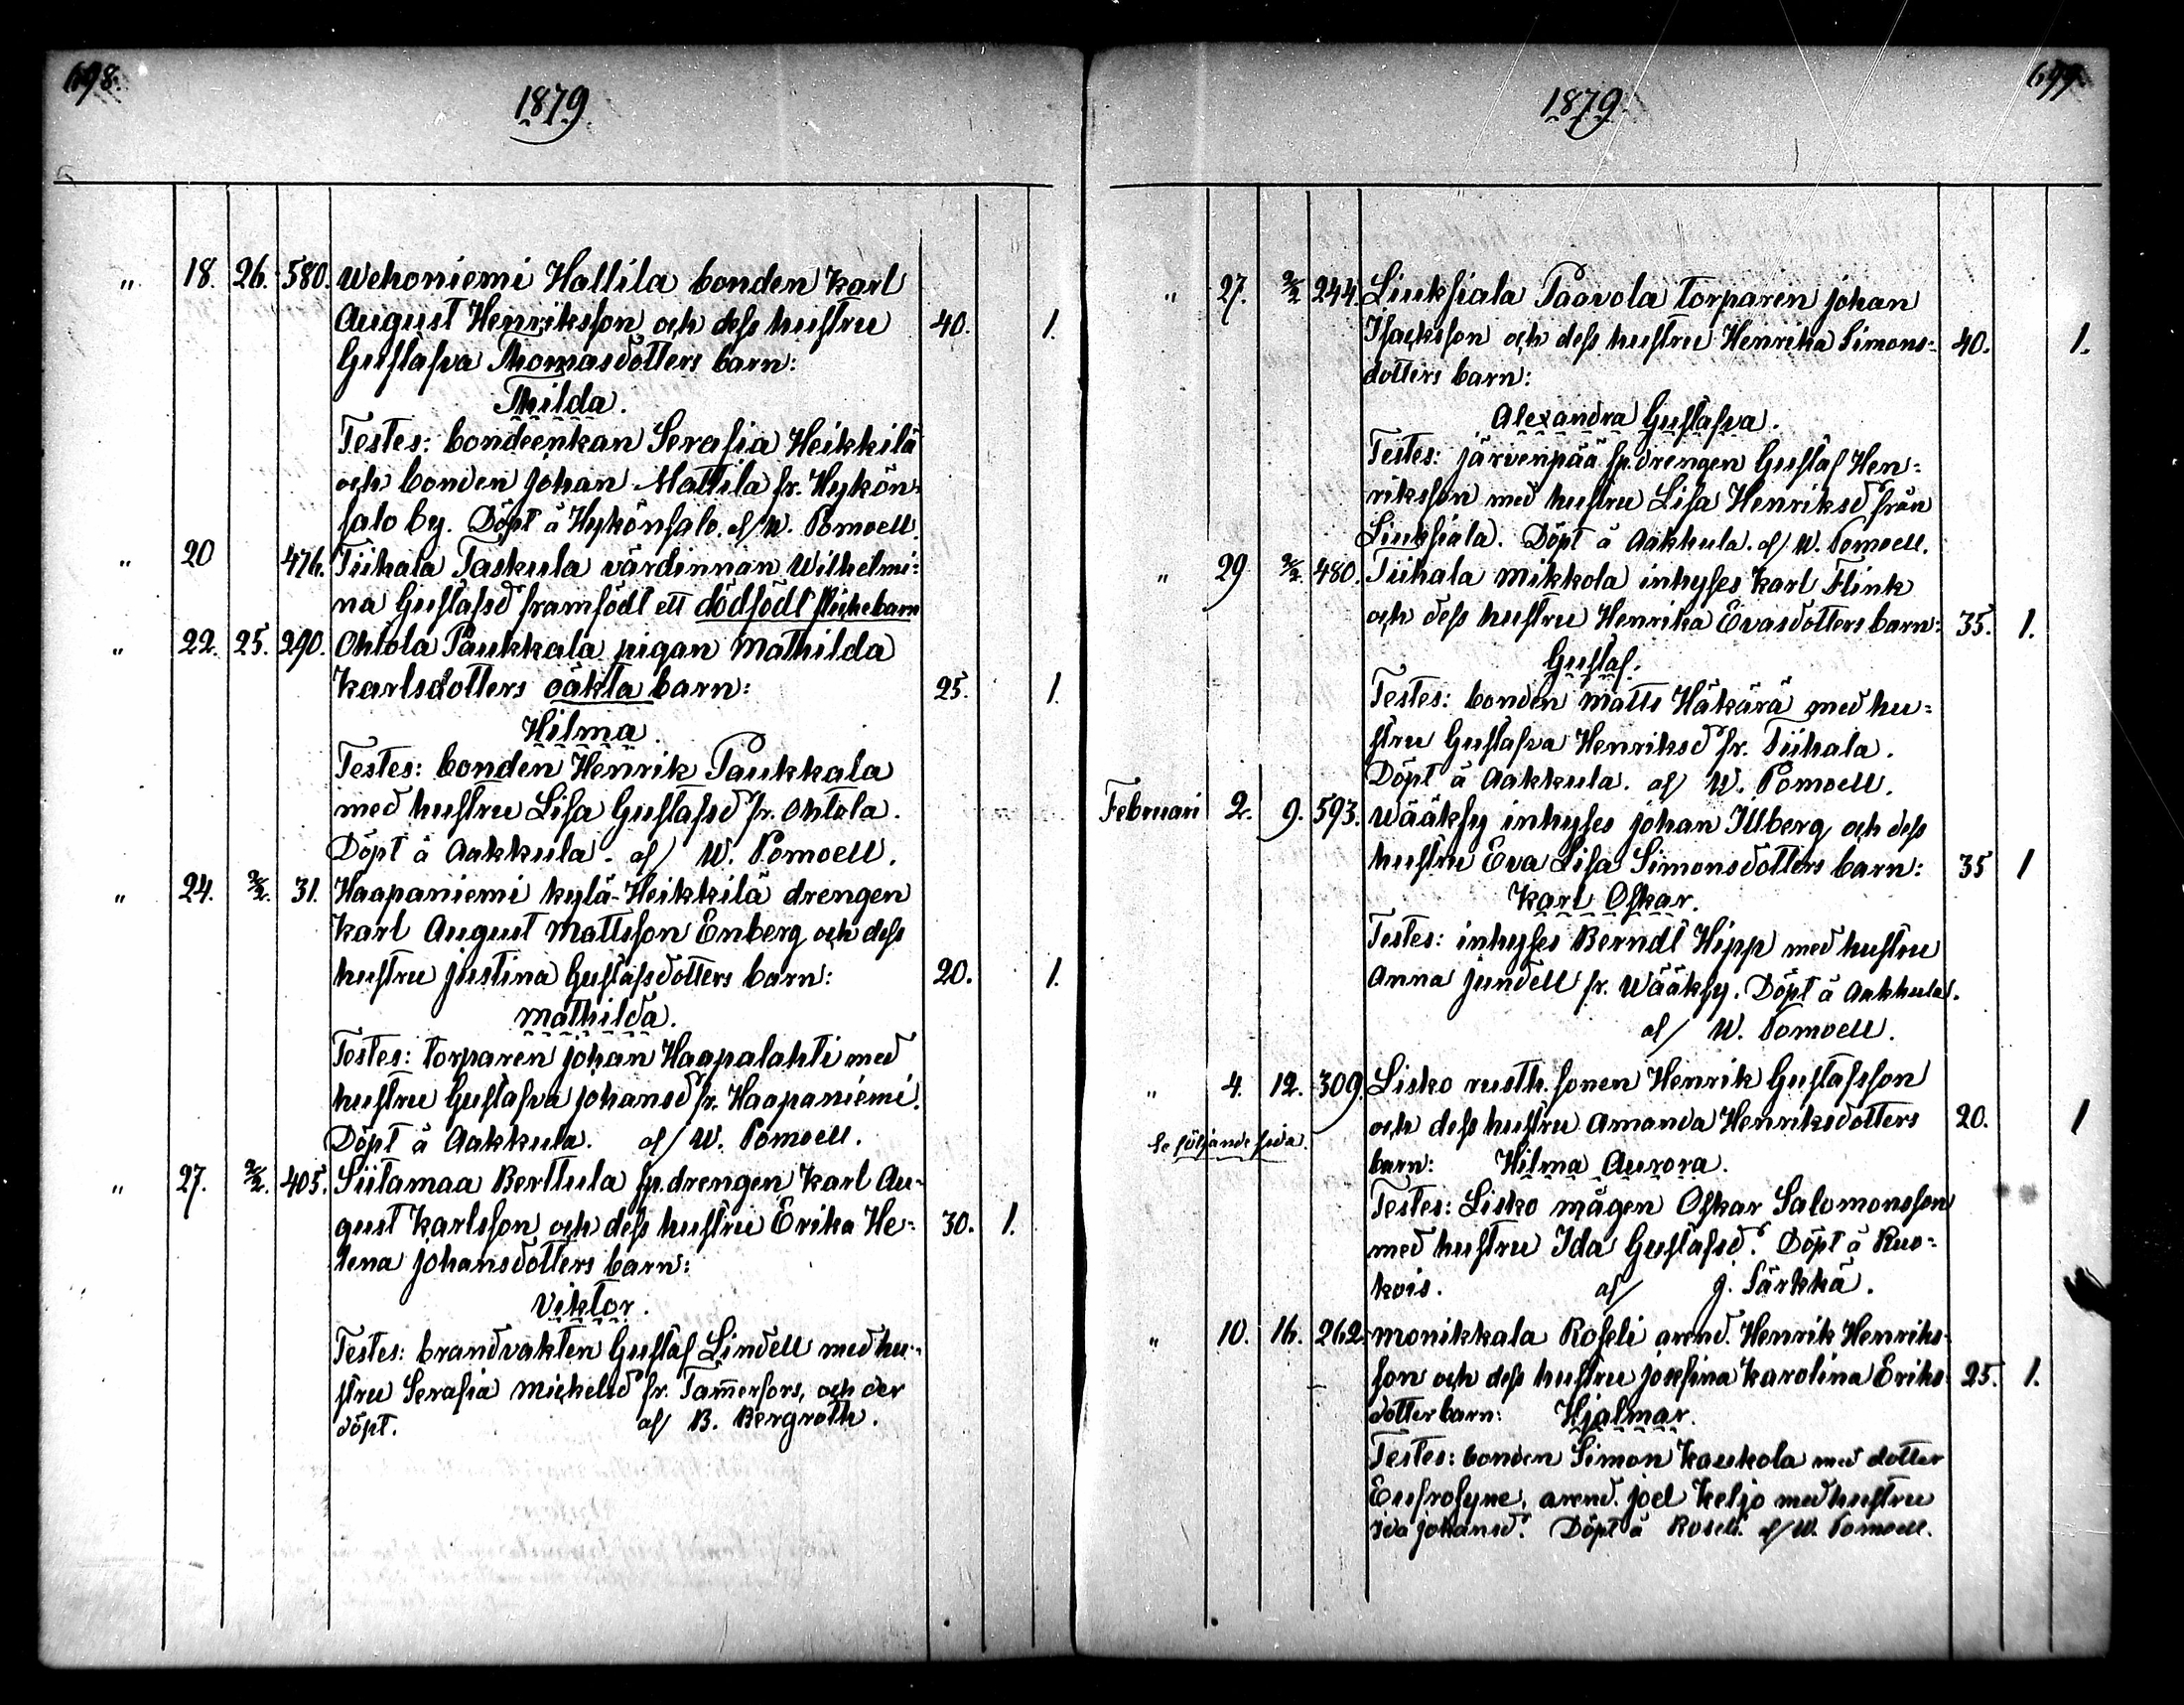 698.
1879.
" 18. 26. 580. Wehoniemi Hallila bonden Karl
August Henriksson och dess hustru 40. 1.
Gustafva Thomasdotters barn:
Thilda.
Testes: bondeenkan Serafia Heikkilä
och bonden Johan Mattila fr. Hykön-
salo by. Döpt å Hykönsalo. af W. Pomoell.
" 20 476. Tiihala Taskula värdinnan Wilhelmi-
na Gustafsd framfödt ett dödfödt flickebarn
" 22. 25. 290. Ohtola Paukkala pigan Mathilda
Karlsdotters oäkta barn: 25. 1.
Hilma.
Testes: bonden Henrik Paukkala
med hustru Lisa Gustafsd fr. Ohtola.
Döpt å Aakkula. af W. Pomoell.
" 24. 2/2. 31. Haapaniemi kylä-Heikkilä drengen
Karl August Mattsson Enberg och dess
hustru Justina Gustafsdotters barn: 20. 1.
Mathilda.
Testes: torparen Johan Haapalahti med
hustru Gustafva Johansd fr. Haapaniemi.
Döpt å Aakkula. af W. Pomoell.
" 27. 2/2. 405. Siitamaa Berttula sp.drengen Karl Au-
gust Karlsson och dess hustru Erika He- 30. 1.
lena Johansdotters barn:
Viktor.
Testes: brandvakten Gustaf Lindell med hu-
stru Serafia Michelsd fr. Tam̄erfors, och der
döpt. af B. Bergroth.
699.
1879.
" 27. 2/2 244. Liuksiala Paavola torparen Johan
Isacksson och dess hustru Henrika Simons- 40. 1.
dotters barn:
Alexandra Gustafva.
Testes: Järvenpää sp.drengen Gustaf Hen-
riksson med hustru Lisa Henriksd från
Liuksiala. Döpt å Aakkula. af W. Pomoell.
" 29 2/2. 480. Tiihala Mikkola inhyses Karl Flink
och dess hustru Henrika Evasdotters barn: 35. 1.
Gustaf.
Testes: bonden Matts Häkärä med hu-
stru Gustafva Henriksd fr. Tiihala.
Döpt å Aakkula. af W. Pomoell.
Februari 2. 9. 593. Wääksy inhyses Johan Illberg och dess
hustru Eva Lisa Simonsdotters barn: 35 1
Karl Oskar.
Testes: inhyses Berndt Hipp med hustru
Anna Jundell fr. Wääksy. Döpt å Aakkula.
af W. Pomoell.
" 4. 12. 309. Lisko rusth. sonen Henrik Gustafsson
och dess hustru Amanda Henriksdotters 20. 1
Se följande sida.
barn: Hilma Aurora.
Testes: Lisko mågen Oskar Salomonsson
med hustru Ida Gustafsd. Döpt å Ruo-
kois. af J. Särkkä.
" 10. 16. 262. Monikkala Roseli arend. Henrik Henriks-
son och dess hustru Josefina Karolina Eriks- 25. 1.
dotter barn: Hjalmar.
Testes: bonden Simon Kaukola med dotter
Eufrosyne, arend. Joel Keljo med hustru
Ida Johansd. Döpt å Roseli. af W. Pomoell.